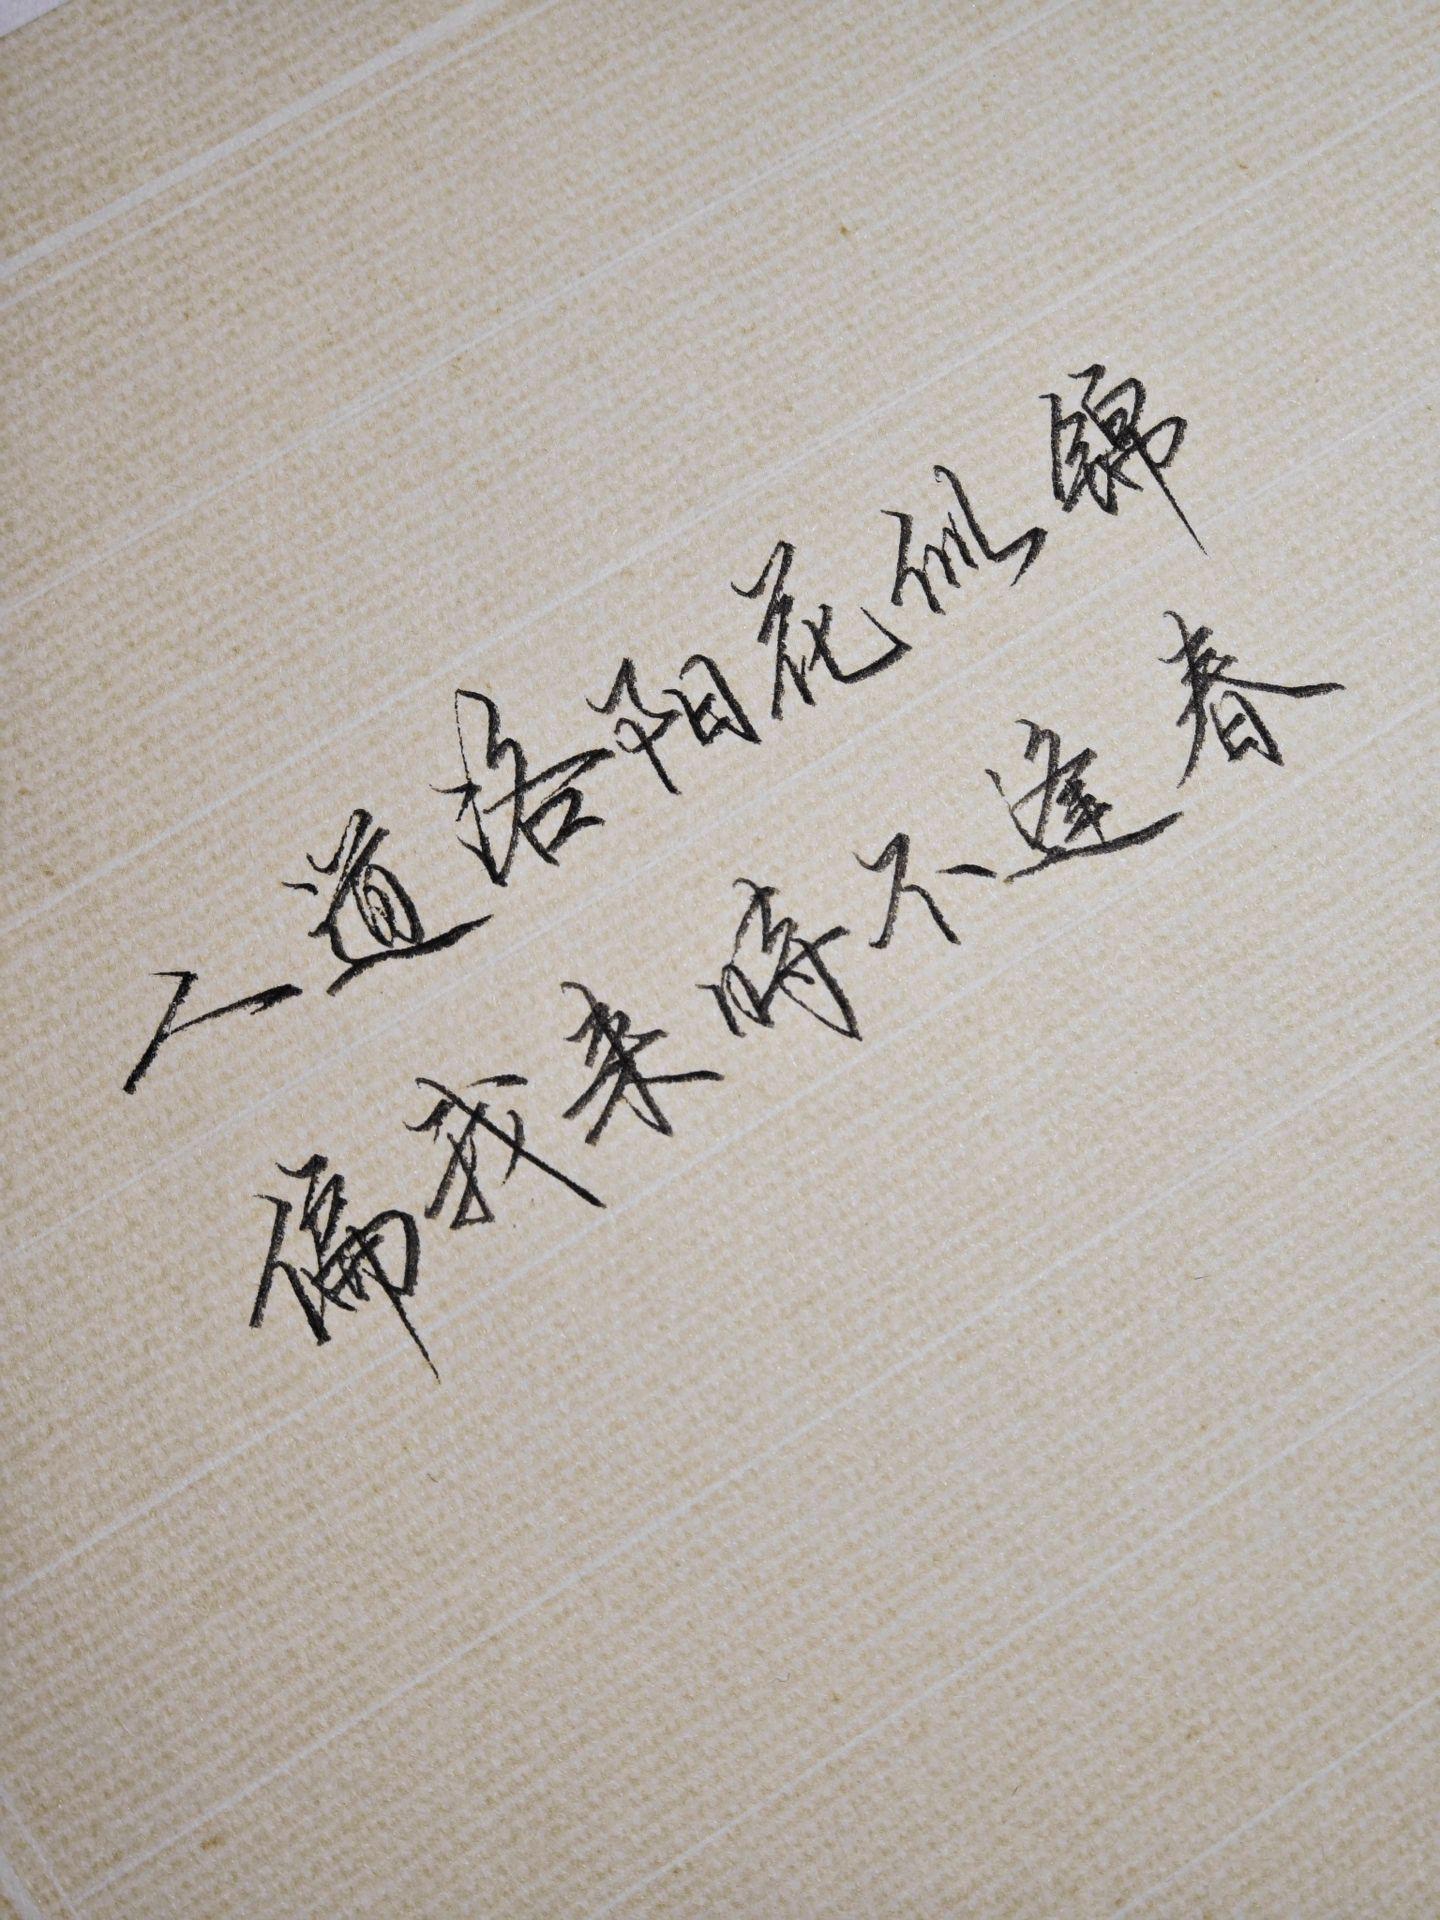 人道洛阳花似锦
偏我来时不逢春